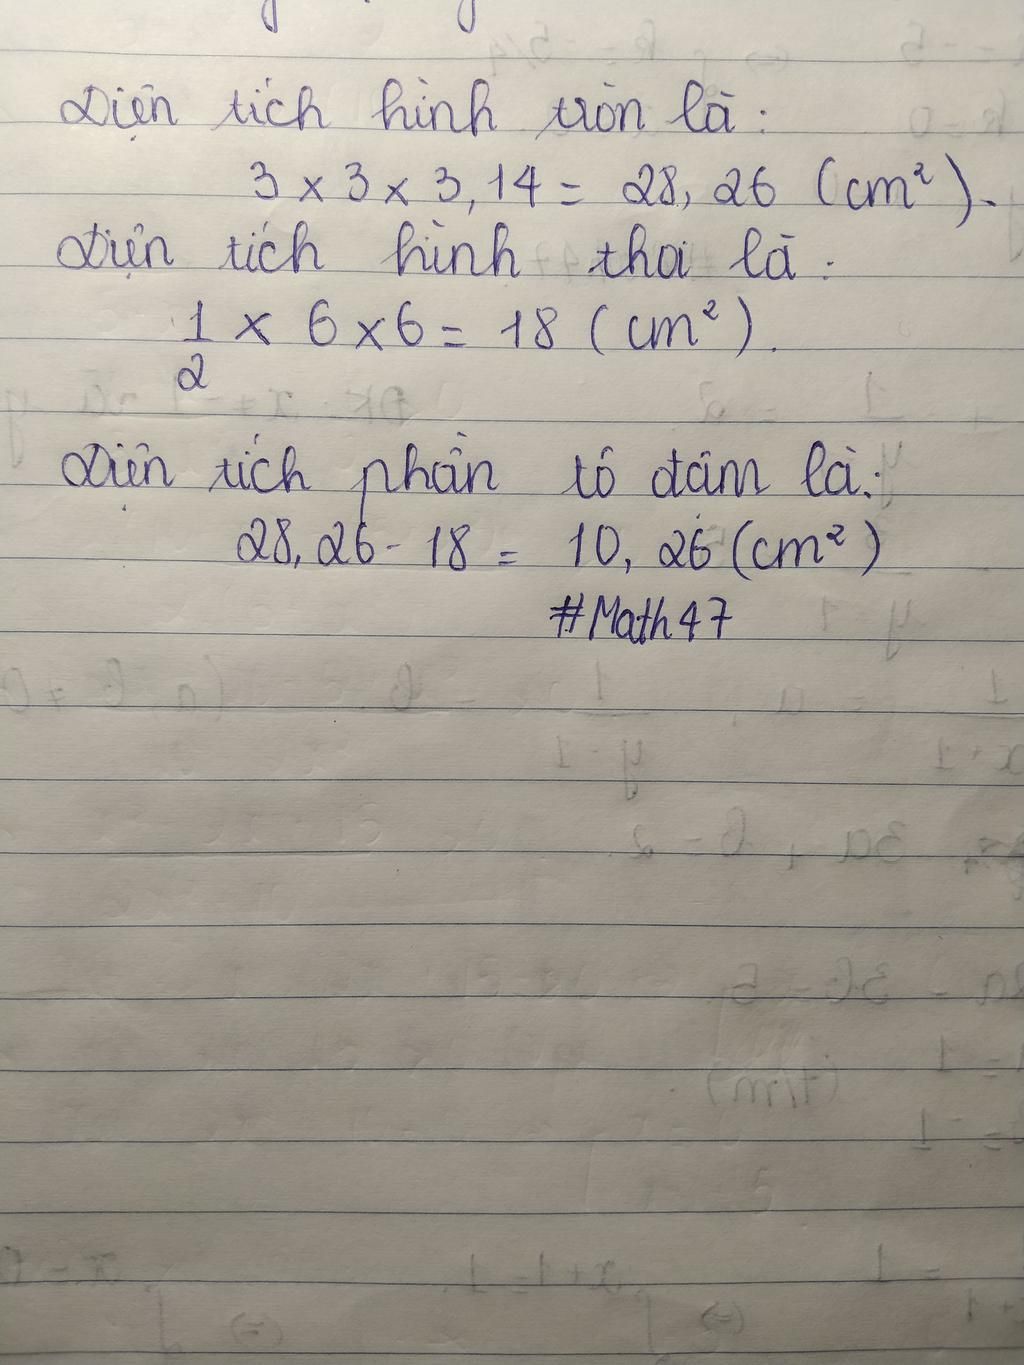 Diện tích hình tròn là:
3 x 3 x 3,14 = 28,26 (cm²).
Diện tích hình thoi là:
1/2 x 6 x 6 = 18 (cm²).
Diện tích phần tô đậm là:
28,26 - 18 = 10,26 (cm²)
#Math47